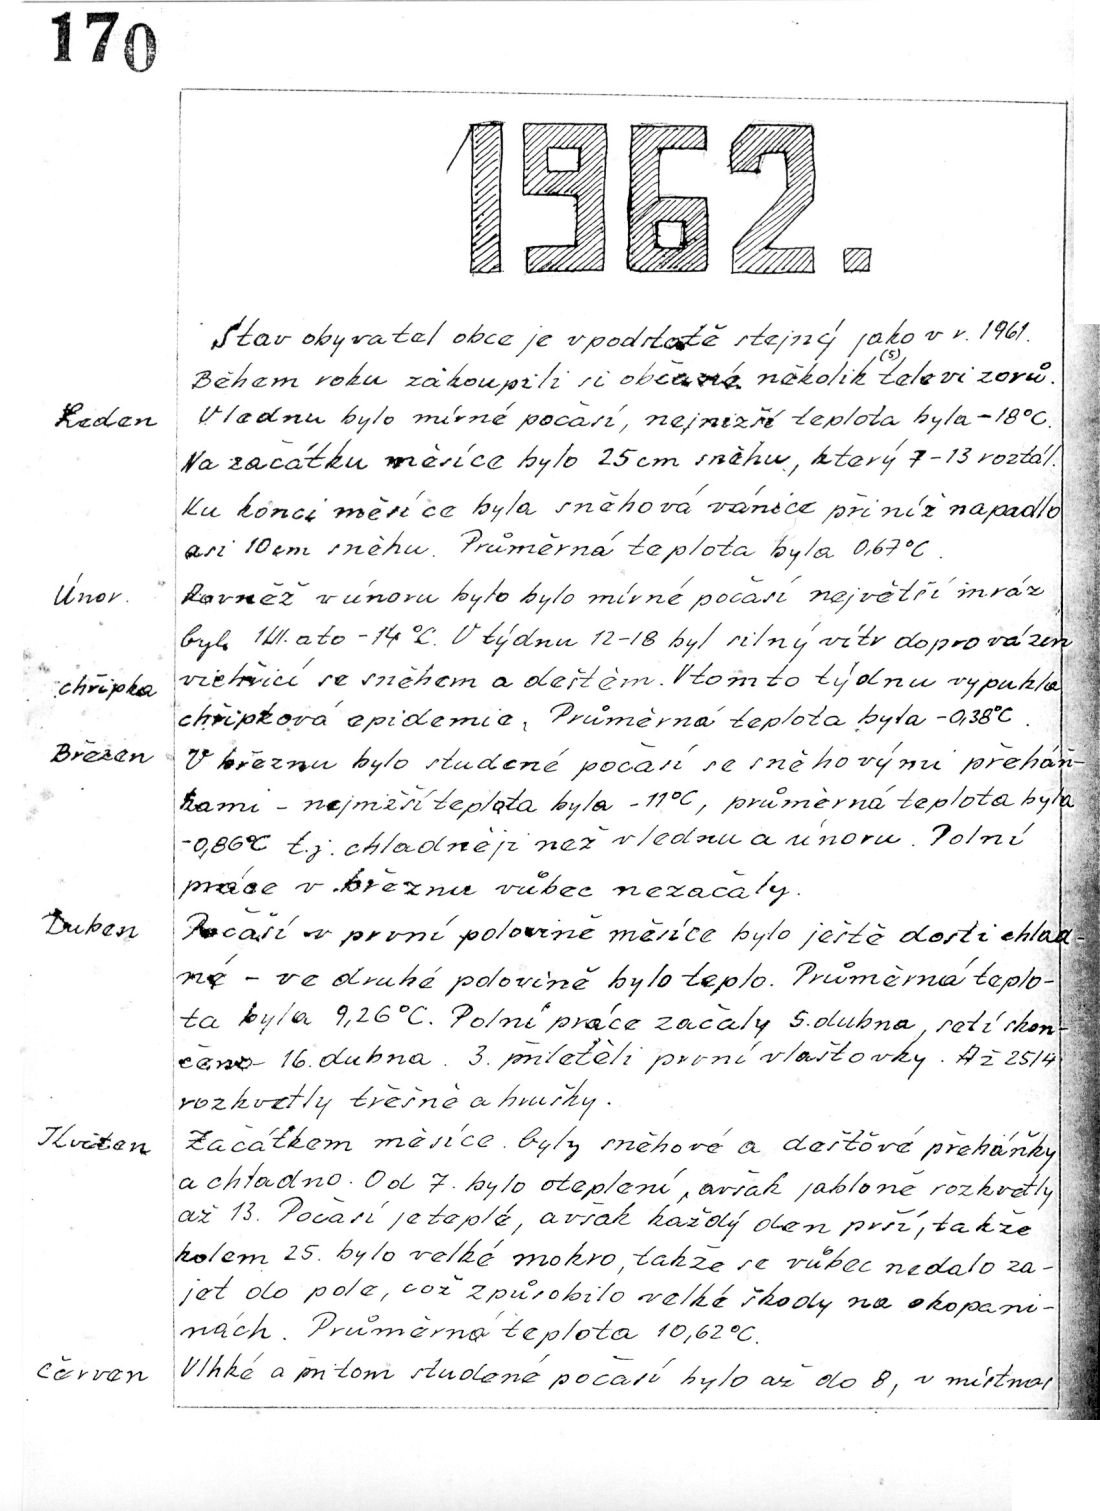 170
1962.
Stav obyvatel obce je vpodstatě stejný jako v r. 1961.
Během roku zakoupili si občané několik (5) televizorů.
Leden V lednu bylo mírné počasí, nejnižší teplota byla -18°C.
Na začátku měsíce bylo 25 cm sněhu, který 7-13 roztál.
Ku konci měsíce byla sněhová vánice při níž napadlo
asi 10 cm sněhu. Průměrná teplota byla 0,67°C.
Únor. Rovněž v únoru bylo bylo mírné počasí největší mráz
byl 1/II. a to -14°C. V týdnu 12-18 byl silný vítr doprovázen
chřipka vichřicí se sněhem a deštěm. V tomto týdnu vypukla
chřipková epidemie, Průměrná teplota byla -0,38°C.
Březen V březnu bylo studené počasí se sněhovými přeháň-
kami - nejnižší teplota byla -11°C, průměrná teplota byla
-0,86°C t.j. chladněji než v lednu a únoru. Polní
práce v březnu vůbec nezačaly.
Duben Počasí v první polovině měsíce bylo ještě dosti chlad-
né - ve druhé polovině bylo teplo. Průměrná teplo-
ta byla 9,26°C. Polní práce začaly 5. dubna, setí skon-
čeno 16. dubna. 3. přiletěli první vlaštovky. Až 25/4
rozkvetly třešně a hrušky.
Květen Začátkem měsíce byly sněhové a dešťové přeháňky
a chladno. Od 7. bylo oteplení, avšak jabloně rozkvetly
až 13. Počasí je teplé, avšak každý den prší, takže
kolem 25. bylo velké mokro, takže se vůbec nedalo za-
jet do pole, což způsobilo velké škody na okopani-
nách. Průměrná teplota 10,62°C.
červen Vlhké a přitom studené počasí bylo až do 8, v místnos